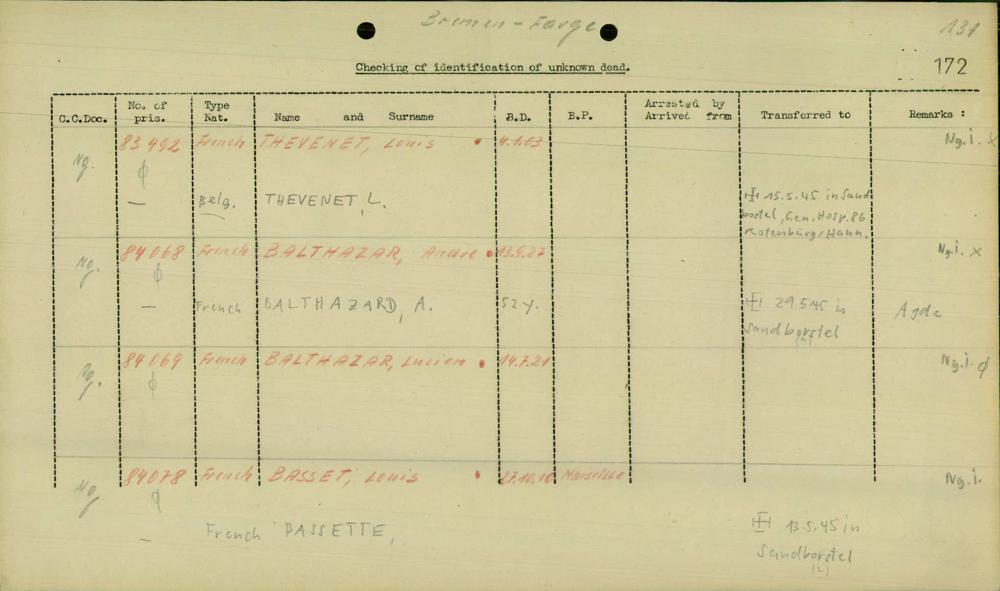 Bremen-Farge
131
Checking of identification of unknown dead.
172
C.C.Doc. No. of pris. Type Nat. Name and Surname B.D. B.P. Arrested by Arrived from Transferred to Remarks :
Ng. 83 492 French THEVENET, Louis 4.1.03 Ng.i. x
φ
— Belg. THEVENET, L. 15.5.45 in Sand
bostel, Gen. Hosp. 86
Rotenburg/Hann.
Ng. 84 068 French BALTHAZAR, André 13.9.27 Ng.i. x
φ
— French BALTHAZARD, A. 52 y. 29.5.45 in Agde
Sandborstel
(2)
Ng. 84 069 French BALTHAZAR, Lucien 14.7.21 Ng.i. φ
φ
Ng 84078 French BASSET, Louis 27.10.10 Marseille Ng.i.
φ
— French BASSETTE, 13.5.45 in
Sandborstel
(2)